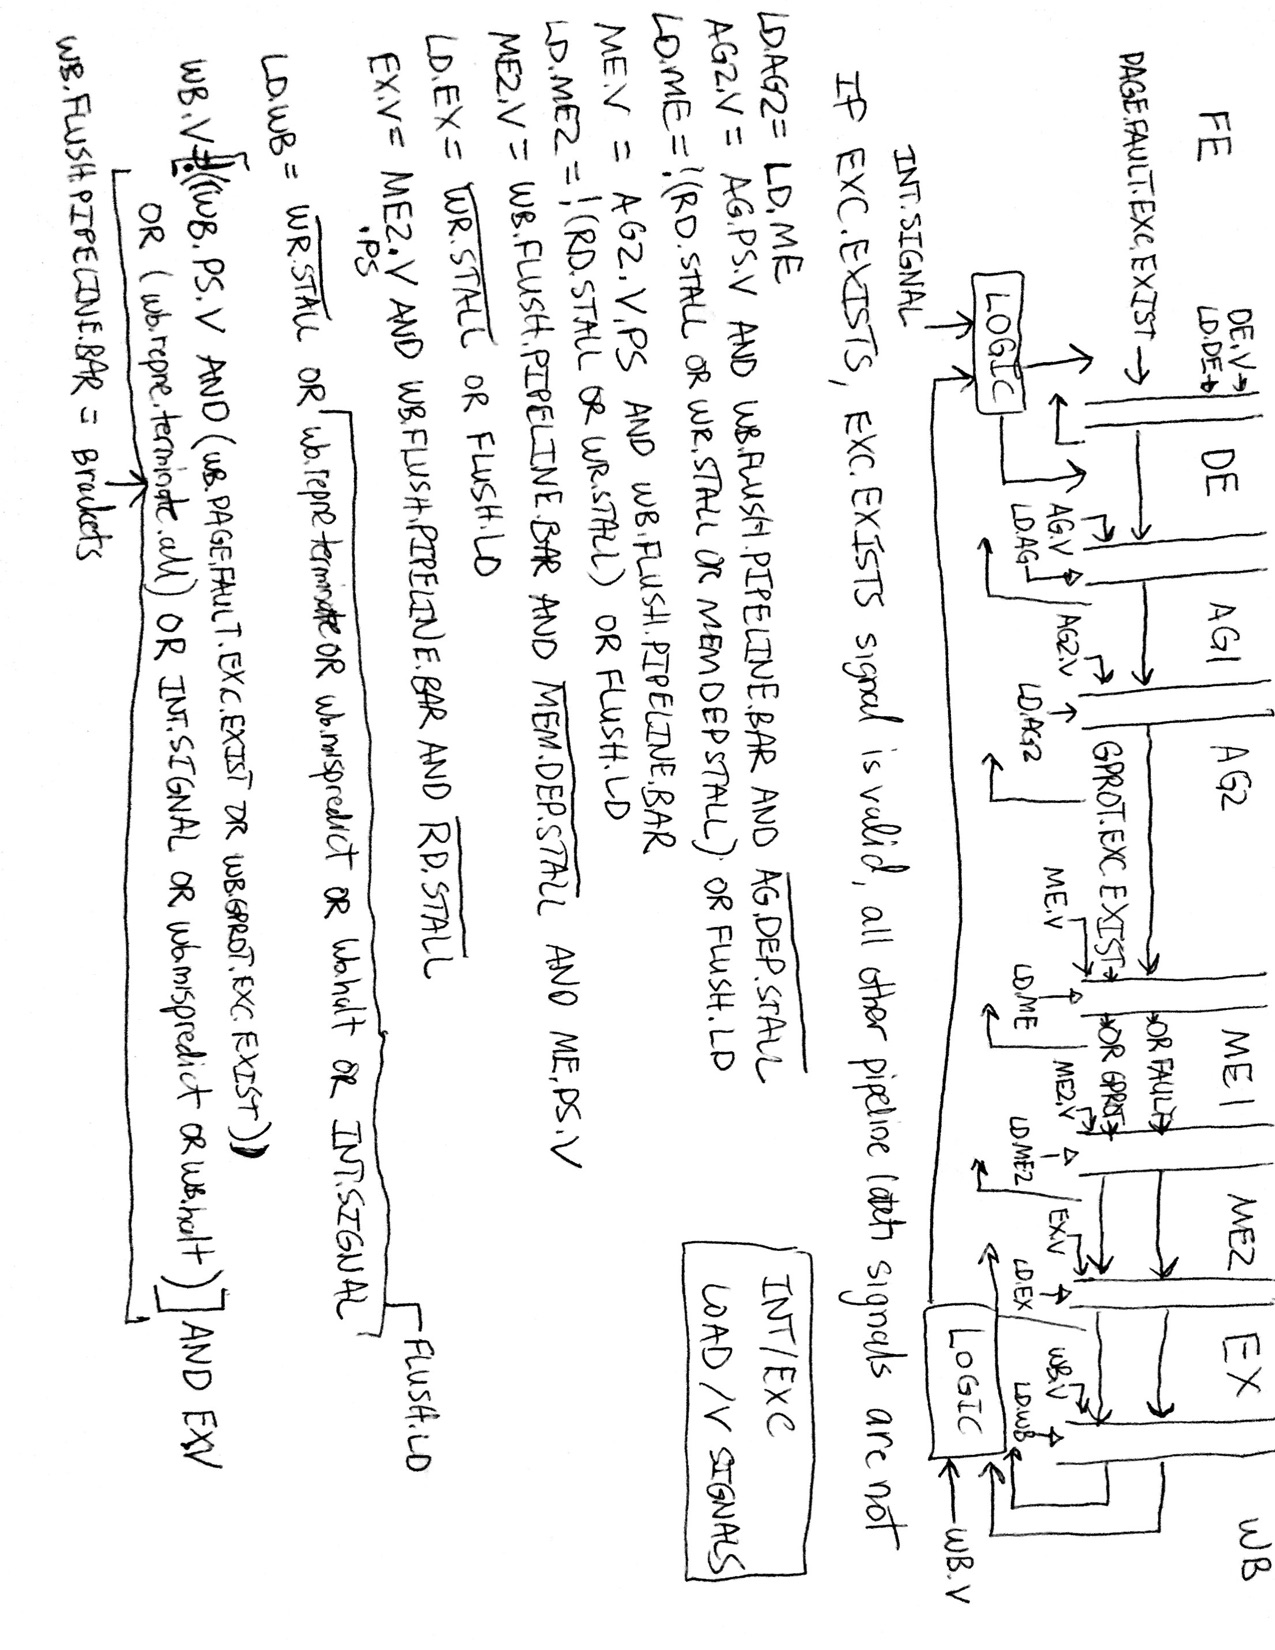 FE DE AG1 AG2 ME1 ME2 EX WB
DE.V
LD.DE
PAGE.FAULT.EXC.EXIST
AG.V
LD.AG
AG2.V
LD.AG2
GPROT.EXC.EXIST
ME.V
LD.ME
OR FAULT
OR GPROT
ME2.V
LD.ME2
EX.V
LD.EX
WB.V
LD.WB
LOGIC
LOGIC
INT.SIGNAL
WB.V
IF EXC.EXISTS, EXC.EXISTS signal is valid, all other pipeline latch signals are not
INT/EXC
LOAD/V SIGNALS
LD.AG2 = LD.ME
AG2.V = AG.PS.V AND WB.FLUSH.PIPELINE.BAR AND AG.DEP.STALL
LD.ME = !(RD.STALL OR WR.STALL OR MEM DEP STALL) OR FLUSH.LD
ME.V = AG2.V.PS AND WB.FLUSH.PIPELINE.BAR
LD.ME2 = !(RD.STALL OR WR.STALL) OR FLUSH.LD
ME2.V = WB.FLUSH.PIPELINE.BAR AND MEM.DEP.STALL AND ME.PS.V
LD.EX = WR.STALL OR FLUSH.LD
EX.V = ME2.V AND WB.FLUSH.PIPELINE.BAR AND RD.STALL
.PS
FLUSH.LD
LD.WB = WR.STALL OR wb.repne.terminate OR wb.mispredict OR wb.halt OR INT.SIGNAL
WB.V = [!((WB.PS.V AND (WB.PAGE.FAULT.EXC.EXIST OR WB.GPROT.EXC.EXIST))
OR (wb.repne.terminate.all) OR INT.SIGNAL OR wb.mispredict OR WB.halt)] AND EX.V
WB.FLUSH.PIPELINE.BAR = Brackets